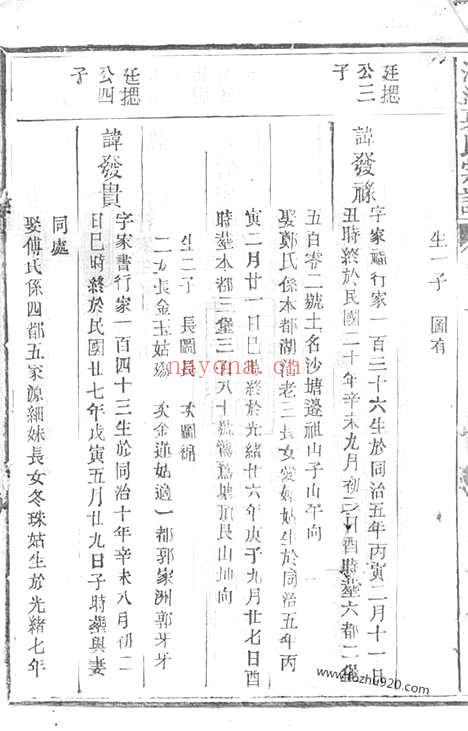 生一子　圖有
廷摁公三子
諱發祿
字家福行家一百三十六生於同治五年丙寅二月十一日
丑時終於民國二十年辛未九月初二日酉時塟六都二堡
五百零二號土名沙塘邊祖山子山午向
娶鄭氏係本都湖沿老三長女愛姑生於同治五年丙
寅二月廿一日巳時終於光緒廿六年庚子九月廿七日酉
時塟本都三堡三百八十號塘頂艮山坤向
生二子　長圖長　次圖錦
二女長金玉姑殤　次金蓮姑適一都郭家洲郭牙牙
廷摁公四子
諱發貴
字家書行家一百四十三生於同治十年辛未八月初二
日巳時終於民國廿七年戊寅五月廿九日子時塟與妻
同處
娶傅氏係四都五家源細妹長女冬珠姑生於光緒七年
nayona.cn
www.fozhu920.com